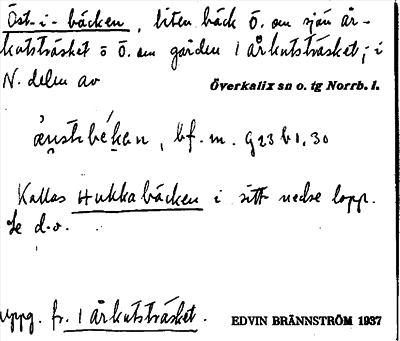 Öst-i-bäcken, liten bäck Ö. om sjön År-
kutsträsket o Ö. om gården 1 Årkutsträsket, i
N. delen av
Överkalix sn o. tg Norrb. l.
bf. m. G 23 b 1, 30
Kallas Hukkabäcken i sitt nedre lopp.
Se d.o.
Uppg. fr. 1 Årkutsträsket.
EDVIN BRÄNNSTRÖM 1937